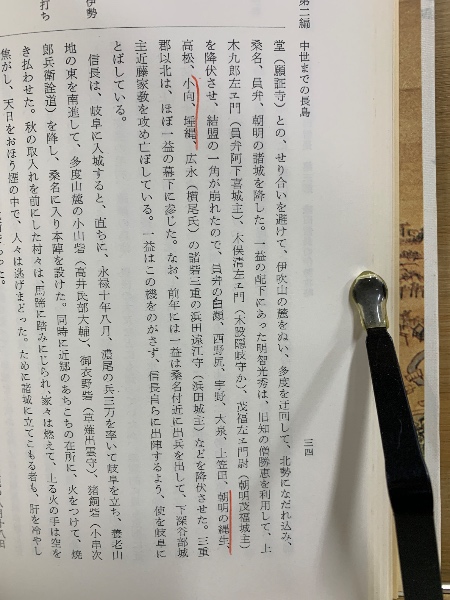 第二編　中世までの長島
三四
堂（願証寺）との、せり合いを避けて、伊吹山の麓をぬい、多度を迂回して、北勢になだれ込み、
桑名、員弁、朝明の諸城を降した。一益の配下にあった明智光秀は、旧知の僧勝恵を利用して、上
木九郎左ヱ門（員弁阿下喜城主）、木俣清左ヱ門（木股隠岐守か）、茂福左ヱ門尉（朝明茂福城主）
を降伏させ、結盟の一角が崩れたので、員弁の白瀬、西野尻、宇野、大泉、上笠田、朝明の縄生、
高松、小向、埋縄、広永（横尾氏）の諸砦三重の浜田遠江守（浜田城主）などを降伏させた。三重
郡以北は、ほぼ一益の幕下に参じた。なお、前年には一益は桑名付近に出兵を出して、下深谷部城
主近藤家教を攻め亡ぼしている。一益はこの機をのがさず、信長自らに出陣するよう、使を岐阜に
とばしている。
信長は、岐阜に入城すると、直ちに、永禄十年八月、濃尾の兵三万を率いて岐阜を立ち、養老山
地の東を南進して、多度山麓の小山砦（高井民部大輔）、御衣野砦（草薙出雲守）、猪飼砦（小串次
郎兵衛詮通）を降し、桑名に入り本陣を設けた。同時に近郡のあちこちの在所に、火をつけて、焼
き払わせた。秋の取入れを前にした村々は、馬蹄に踏みにじられ、家々は燃えて、上る火の手は空を
焦がし、天日をおほう煙の中で、人々は逃げまどった。ために諸城に立てこもる者も、肝を冷やし
伊勢
打ち